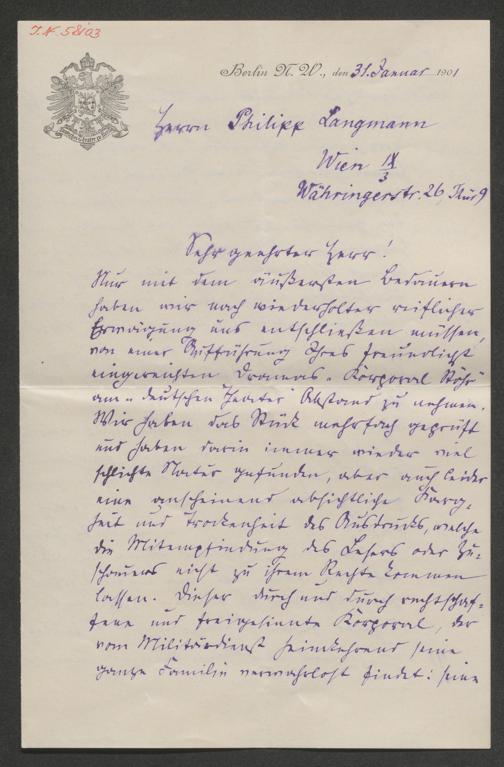 I.N. 58103
Berlin N.W., den 31. Januar 1901
Herrn Philipp Langmann
Wien IX/3
Währingerstr. 26, Thür 9
Sehr geehrter Herr!
Nur mit dem äußersten Bedauern
haben wir nach wiederholter reiflicher
Erwägung uns entschließen müssen,
von einer Aufführung Ihres freundlichst
eingereichten Dramas „Korporal Stöhr"
am „deutschen Theater" Abstand zu nehmen.
Wir haben das Stück mehrfach geprüft
und haben darin immer wieder viel
schlichte Natur gefunden, aber auch leider
eine anscheinend absichtliche Karg-
heit und Trockenheit des Ausdrucks, welche
die Mitempfindung des Lesers oder Zu-
schauers nicht zu ihrem Rechte kommen
lassen. Dieser durch und durch rechtschaf-
fene und freigesinnte Korporal, der
vom Militärdienst heimkehrend seine
ganze Familie verwahrlost findet: seine